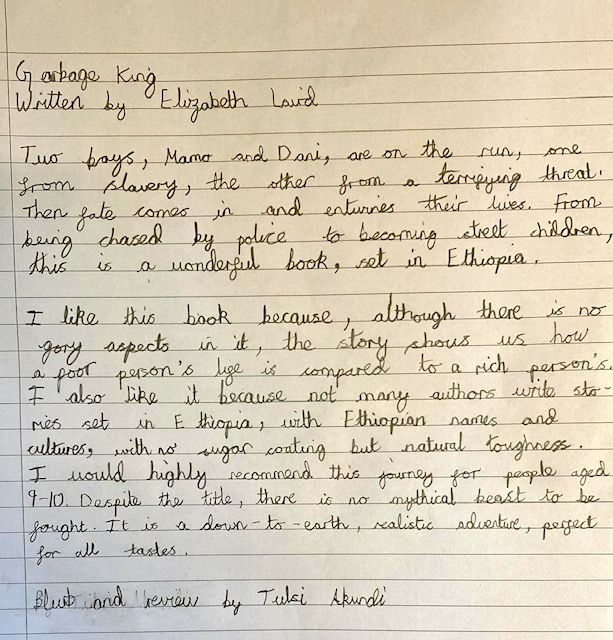 Garbage King
Written by Elizabeth Laird
Two boys, Mamo and Dani, are on the run, one
from slavery, the other from a terrifying threat.
Then fate comes in and enturnies their lives. From
being chased by police to becoming street children,
this is a wonderful book, set in Ethiopia.
I like this book because, although there is no
gory aspects in it, the story shows us how
a poor person's life is compared to a rich person's.
I also like it because not many authors write sto-
ries set in Ethiopia, with Ethiopian names and
cultures, with no sugar coating but natural toughness.
I would highly recommend this journey for people aged
9-10. Despite the title, there is no mythical beast to be
fought. It is a down-to-earth, realistic adventure, perfect
for all tastes.
Blurb and review by Tulsi Akundi